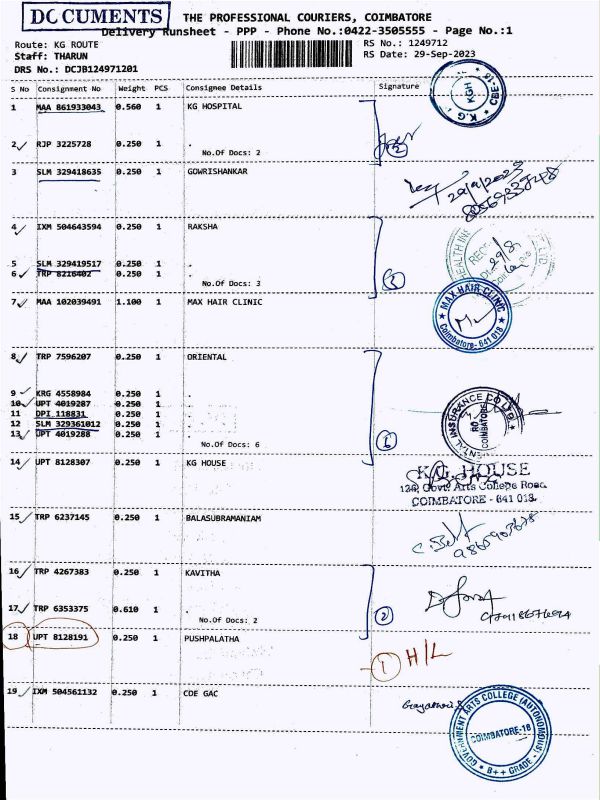 DOCUMENTS
THE PROFESSIONAL COURIERS, COIMBATORE
Delivery Runsheet - PPP - Phone No.:0422-3505555 - Page No.:1
Route: KG ROUTE
RS No.: 1249712
Staff: THARUN
RS Date: 29-Sep-2023
DRS No.: DCJB124971201
S No Consignment No Weight PCS Consignee Details Signature
1 MAA 861933043 0.560 1 KG HOSPITAL
K.G KGH CBE-18
2 RJP 3225728 0.250 1 .
No.Of Docs: 2
2
3 SLM 329418635 0.250 1 GOWRISHANKAR
29/9/2023
4 IXM 504643594 0.250 1 RAKSHA
5 SLM 329419517 0.250 1 .
6 TRP 8216402 0.250 1 .
No.Of Docs: 3
3
7 MAA 102039491 1.100 1 MAX HAIR CLINIC
MAX HAIR CLINIC
Coimbatore- 641 018
8 TRP 7596207 0.250 1 ORIENTAL
9 KRG 4558984 0.250 1 .
10 UPT 4019287 0.250 1 .
11 DPI 118831 0.250 1 .
12 SLM 329361012 0.250 1 .
13 UPT 4019288 0.250 1 .
No.Of Docs: 6
INSURANCE CO LTD
RO
COIMBATORE
14 UPT 8128307 0.250 1 KG HOUSE
K.G. HOUSE
Govt. Arts College Road,
COIMBATORE - 641 018.
15 TRP 6237145 0.250 1 BALASUBRAMANIAM
16 TRP 4267383 0.250 1 KAVITHA
17 TRP 6353375 0.610 1 .
No.Of Docs: 2
2
18 UPT 8128191 0.250 1 PUSHPALATHA
1 H/L
19 IXM 504561132 0.250 1 CDE GAC
GOVERNMENT ARTS COLLEGE (AUTONOMOUS)
COIMBATORE-18
B++ GRADE